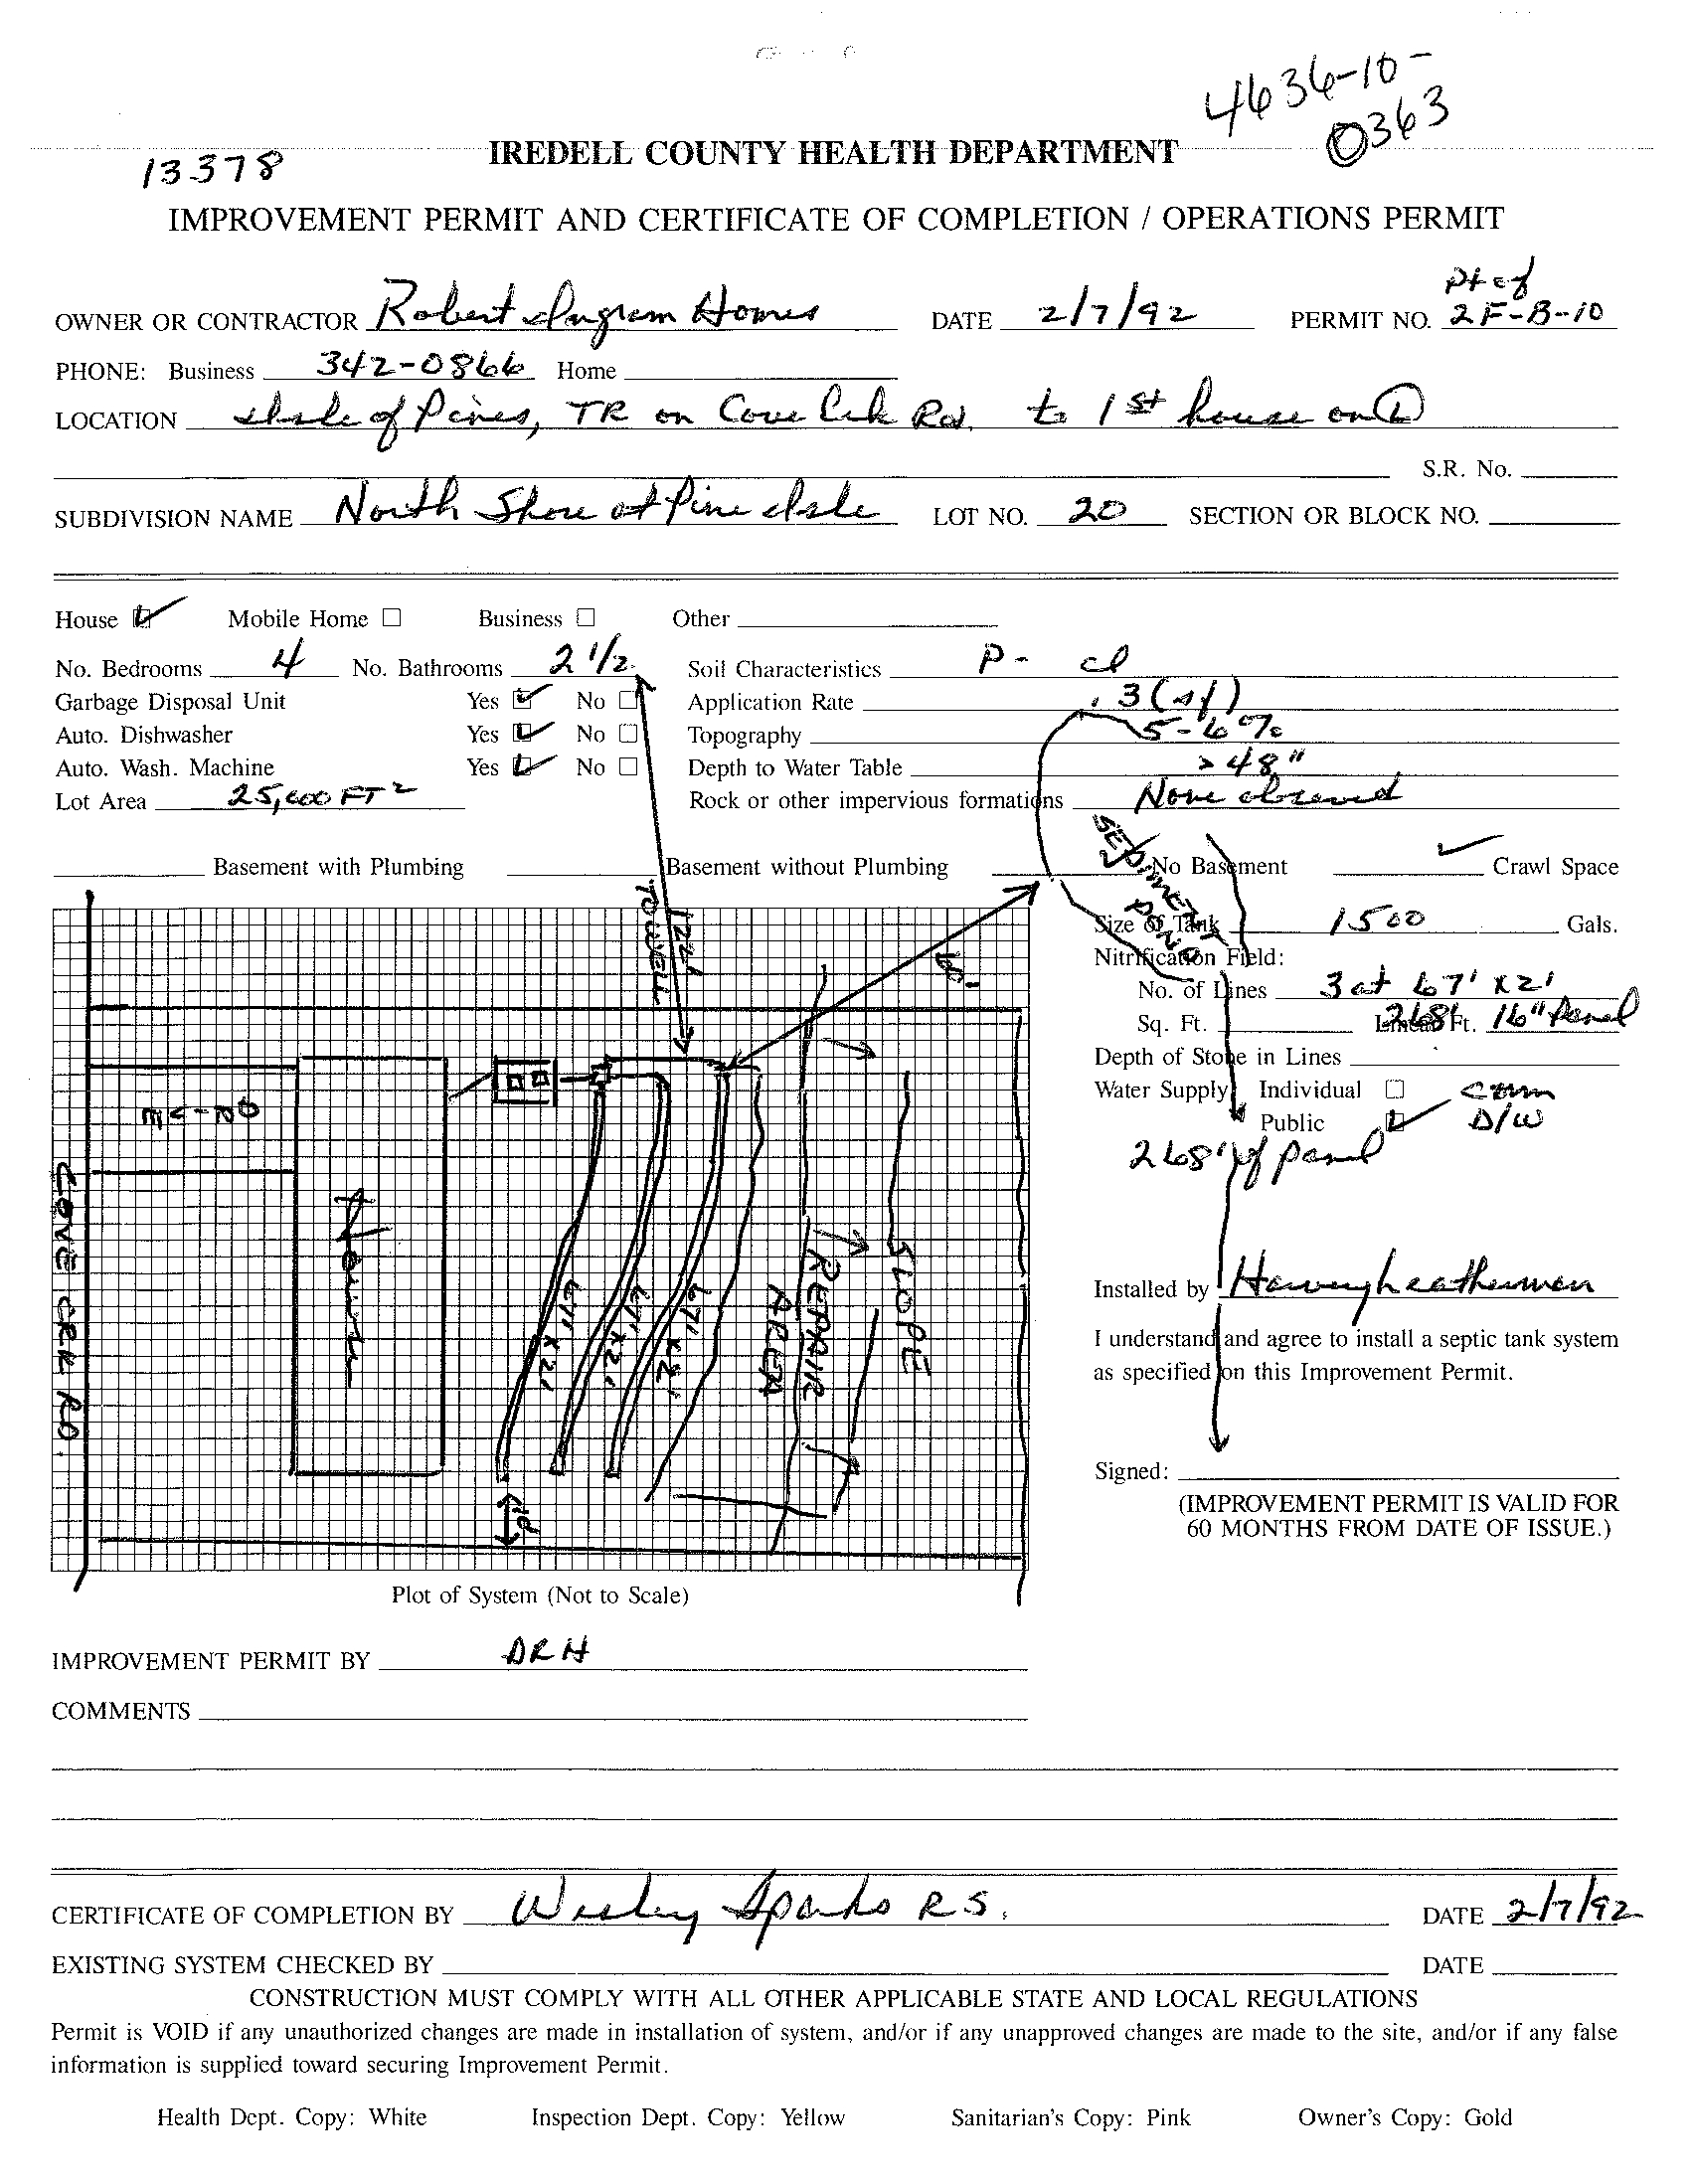 4636-10-
0363
13378
IREDELL COUNTY HEALTH DEPARTMENT
IMPROVEMENT PERMIT AND CERTIFICATE OF COMPLETION / OPERATIONS PERMIT
Pt of
OWNER OR CONTRACTOR Robert Ingram Homes DATE 2/7/92 PERMIT NO. 2F-B-10
PHONE: Business 342-0866 Home
LOCATION Isle of Pines, TR on Cove Crk Rd. to 1st house on L
S.R. No.
SUBDIVISION NAME North Shore at Pine Isle LOT NO. 20 SECTION OR BLOCK NO.
House Mobile Home Business Other
No. Bedrooms 4 No. Bathrooms 2 1/2 Soil Characteristics P- cl
Garbage Disposal Unit Yes No Application Rate .3 (sf)
Auto. Dishwasher Yes No Topography 5-6%
Auto. Wash. Machine Yes No Depth to Water Table >48"
Lot Area 25,600 FT2 Rock or other impervious formations None observed
Basement with Plumbing Basement without Plumbing No Basement Crawl Space
SEDIMENT POND
Size of Tank 1500 Gals.
Nitrification Field:
No. of Lines 3 at 67' x 2'
Sq. Ft. Lineal Ft. 268' 16" Panel
Depth of Stone in Lines
Water Supply Individual Com
Public D/W
268' of panel
TO WELL
122'
60'
DR-VE
House
COVE CRK RD.
67' x 2'
67' x 2'
67' x 2'
REPAIR
AREA
SLOPE
Installed by Harvey Leatherman
I understand and agree to install a septic tank system
as specified on this Improvement Permit.
Signed:
(IMPROVEMENT PERMIT IS VALID FOR
60 MONTHS FROM DATE OF ISSUE.)
Plot of System (Not to Scale)
IMPROVEMENT PERMIT BY DRH
COMMENTS
CERTIFICATE OF COMPLETION BY Wesley Sparks R.S. DATE 2/7/92
EXISTING SYSTEM CHECKED BY DATE
CONSTRUCTION MUST COMPLY WITH ALL OTHER APPLICABLE STATE AND LOCAL REGULATIONS
Permit is VOID if any unauthorized changes are made in installation of system, and/or if any unapproved changes are made to the site, and/or if any false
information is supplied toward securing Improvement Permit.
Health Dept. Copy: White Inspection Dept. Copy: Yellow Sanitarian's Copy: Pink Owner's Copy: Gold